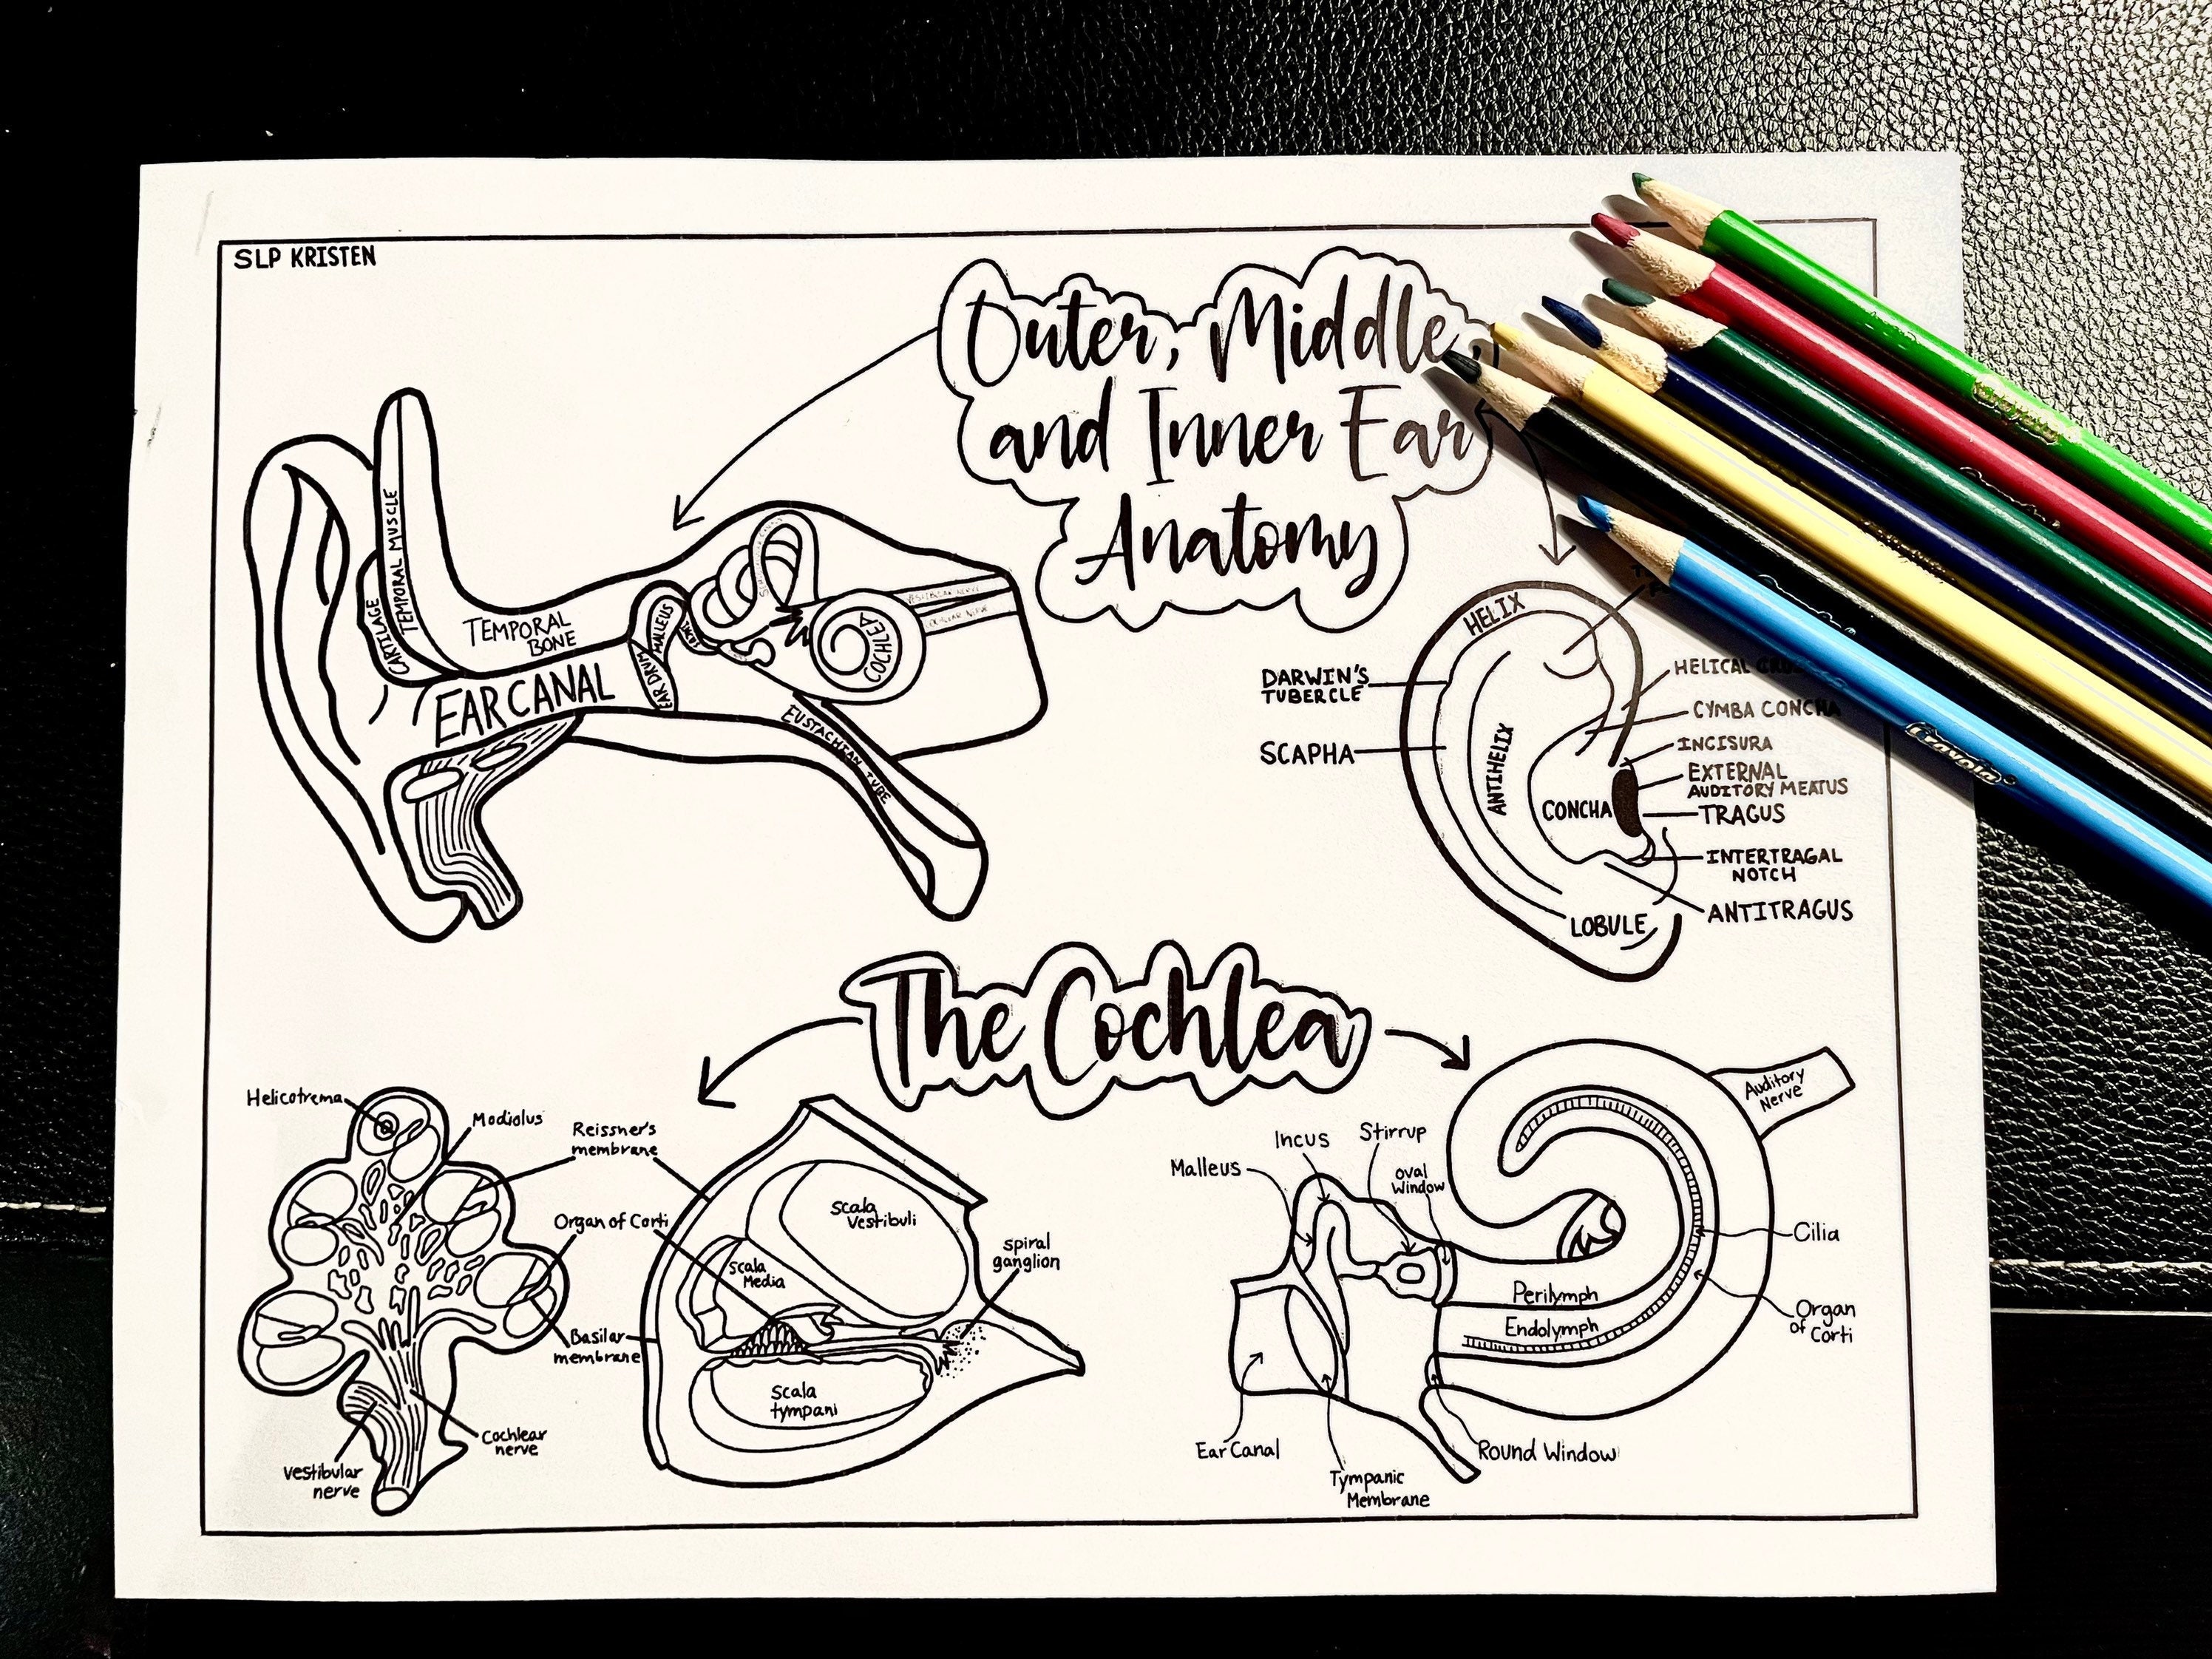 SLP KRISTEN
Outer, Middle,
and Inner Ear
Anatomy
CARTILAGE
TEMPORAL MUSCLE
TEMPORAL
BONE
EAR CANAL
EAR DRUM
MALLEUS
COCHLEA
EUSTACHIAN TUBE
HELIX
DARWIN'S
TUBERCLE
SCAPHA
ANTIHELIX
CONCHA
LOBULE
HELICAL
CYMBA CONCHA
INCISURA
EXTERNAL
AUDITORY MEATUS
TRAGUS
INTERTRAGAL
NOTCH
ANTITRAGUS
The Cochlea
Helicotrema
Modiolus
Reissner's
membrane
Organ of Corti
Basilar
membrane
Cochlear
nerve
Vestibular
nerve
Scala
Vestibuli
Scala
Media
Scala
tympani
spiral
ganglion
Malleus
Incus
Stirrup
oval
Window
Auditory
Nerve
Cilia
Perilymph
Endolymph
Organ
of Corti
Ear Canal
Tympanic
Membrane
Round Window
Crayola